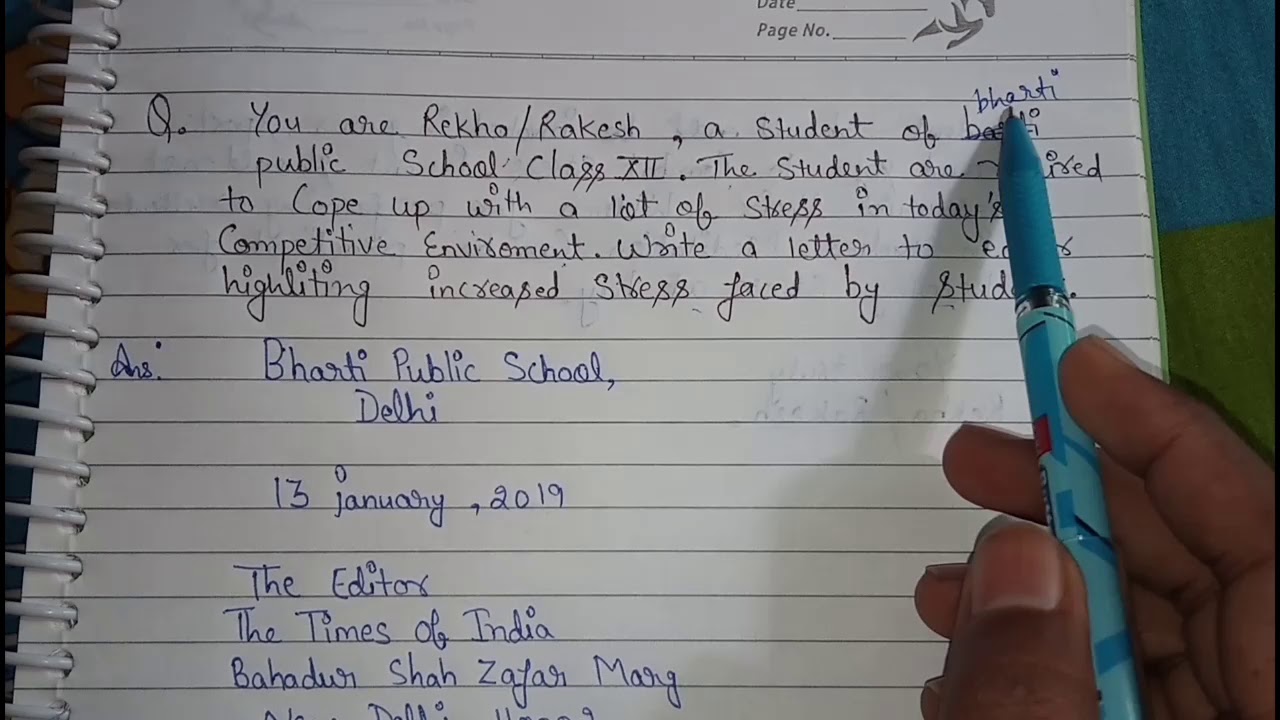 Date
Page No.
bharti
Q. You are Rekho/Rakesh, a Student of
public School Class XII. The Student are
to Cope up with a lot of Stress in today's
Competitive Enviroment. Write a letter to
highliting increased Stress faced by
Ans: Bharti Public School,
Delhi
13 january, 2019
The Editor
The Times of India
Bahadur Shah Zafar Marg